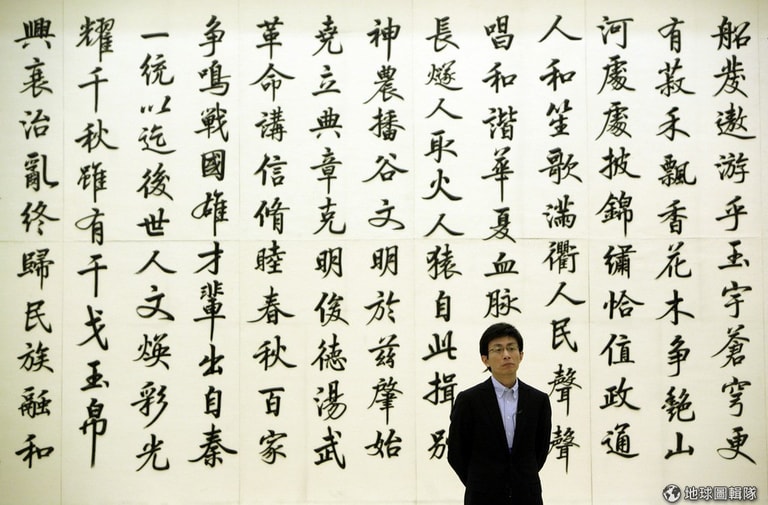 船發遨游乎玉宇蒼穹更
有菽禾飄香花木争艷山
河處處披錦繡恰值政通
人和笙歌滿衢人民聲聲
唱和諧華夏血脉
長燧人取火人猿自此揖别
神農播谷文明於茲肇始
堯立典章克明俊德湯武
革命講信脩睦春秋百家
争鳴戰國雄才輩出自秦
一統以迄後世人文煥彩光
耀千秋雖有干戈玉帛
興衰治亂終歸民族融和
地球圖輯隊